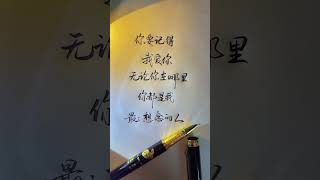 你要记得
我爱你
无论你在哪里
你都是我
最想念的人